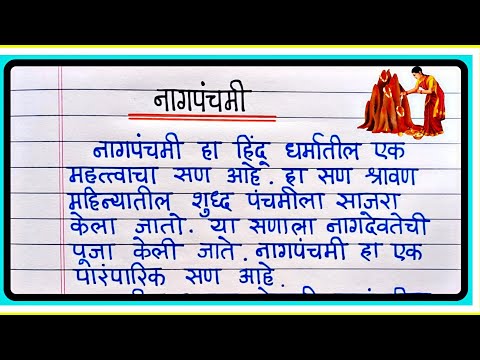 नागपंचमी
नागपंचमी हा हिंदू धर्मातील एक
महत्त्वाचा सण आहे. हा सण श्रावण
महिन्यातील शुध्द पंचमीला साजरा
केला जातो. या सणाला नागदेवतेची
पूजा केली जाते. नागपंचमी हा एक
पारंपारिक सण आहे.